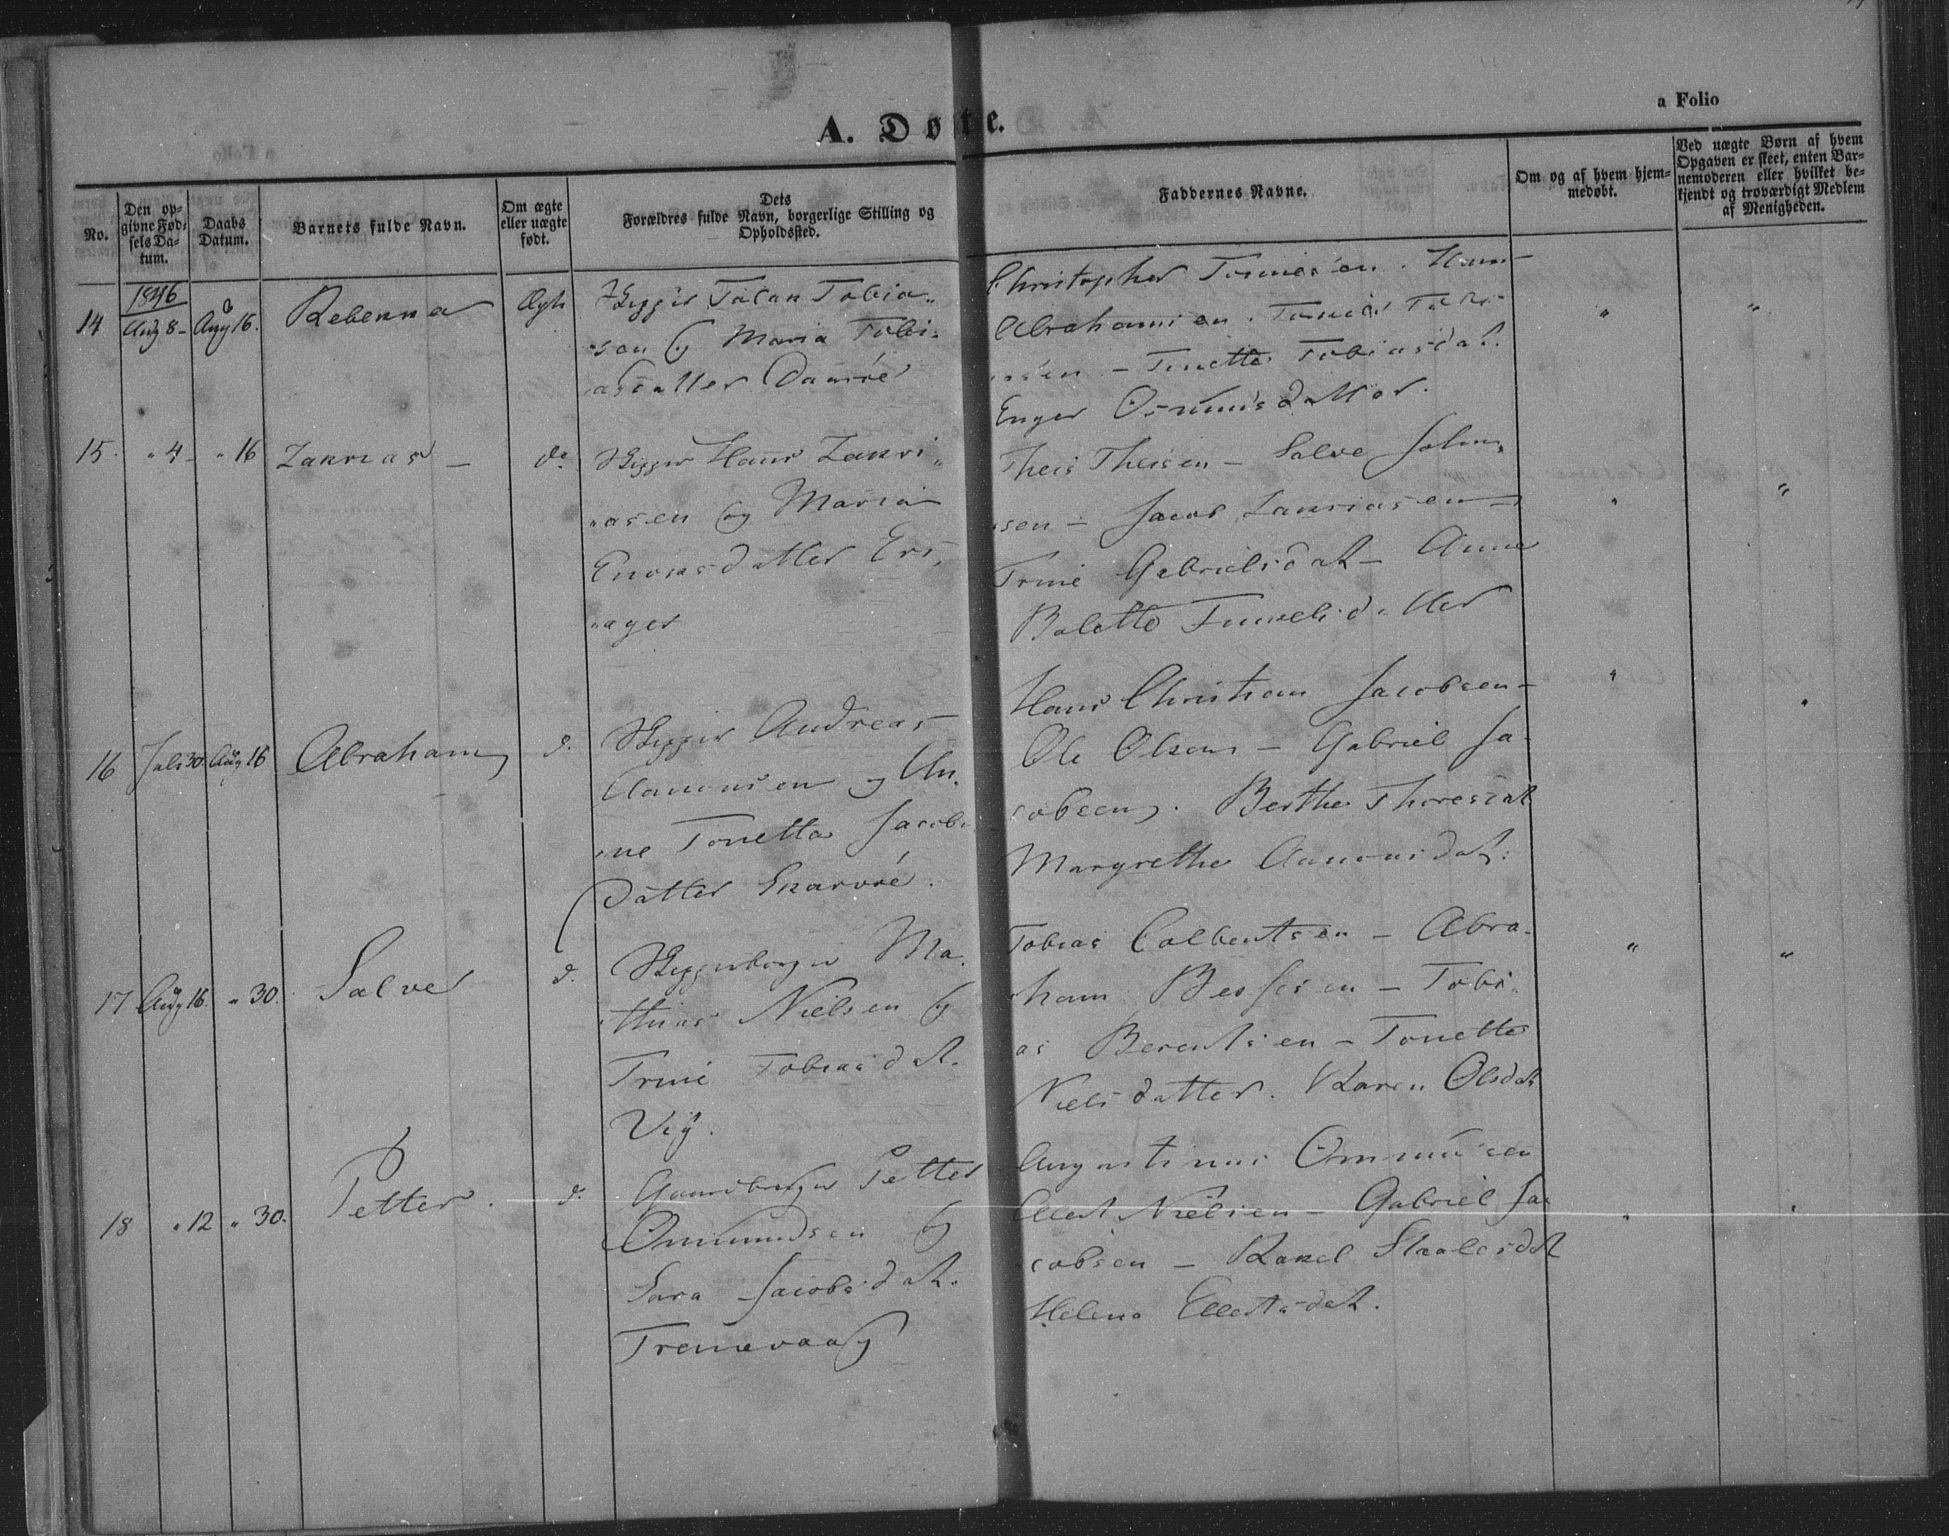 a Folio
A. Døbte.
No.
Den op-
givne Fød-
sels Da-
tum.
Daabs
Datum.
Barnets fulde Navn.
Om ægte
eller uægte
født.
Dets
Forældres fulde Navn, borgerlige Stilling og
Opholdssted.
Faddernes Navne.
Om og af hvem hjem-
medøbt.
Ved uægte Børn af hvem
Opgaven er skeet, enten Bar-
nemoderen eller hvilket be-
kjendt og troværdigt Medlem
af Menigheden.
1846
14 Aug 8 - Aug 16. Rebekka Ægte
Skipper Tølan Tobia-
sen og Maria Tobi-
asdatter
Christopher Tønnesen. Hans
Abrahamsen. Tønnes Tobi-
asen - Tonette Tobiasdat.
Enger Osmunsdatter.
15. " 4 - " 16 Zakrias - do.
Skipper Hans Zakri-
asen og Maria
Enoksdatter Eri-
ager
Theis Theisen - Salve John-
sen - Jacob Zakriasen -
Trine Gabrielsdat - Anne
Bolette Samuelsdatter
16 Juli 30. Aug 16 Abraham d.
Skipper Andreas
Aanonsen og An-
ne Tonette Jacobs
Datter Skarvøe.
Hans Christian Jacobsen -
Ole Olsen - Gabriel Ja-
cobsen. Berthe Thoresdat
Margrethe Aanonsdat.
17 Aug 16. " 30. Salve d.
Skipperborger Ma-
thias Nielsen og
Trine Tobiasdat.
Vig.
Tobias Calbentsen - Abra-
ham Bessesen - Tobi-
as Berentsen - Tonette
Nielsdatter. Karen Olsdat
18 " 12 " 30. Petter. d.
Gaardbruger Petter
Ommundsen og
Sara Jacobsdat.
Trennevaag
Augustinus Ommunsen
Ellert Nielsen - Gabriel Ja-
cobsen - Rakel Staalesdat
Helene Ellertsdat.